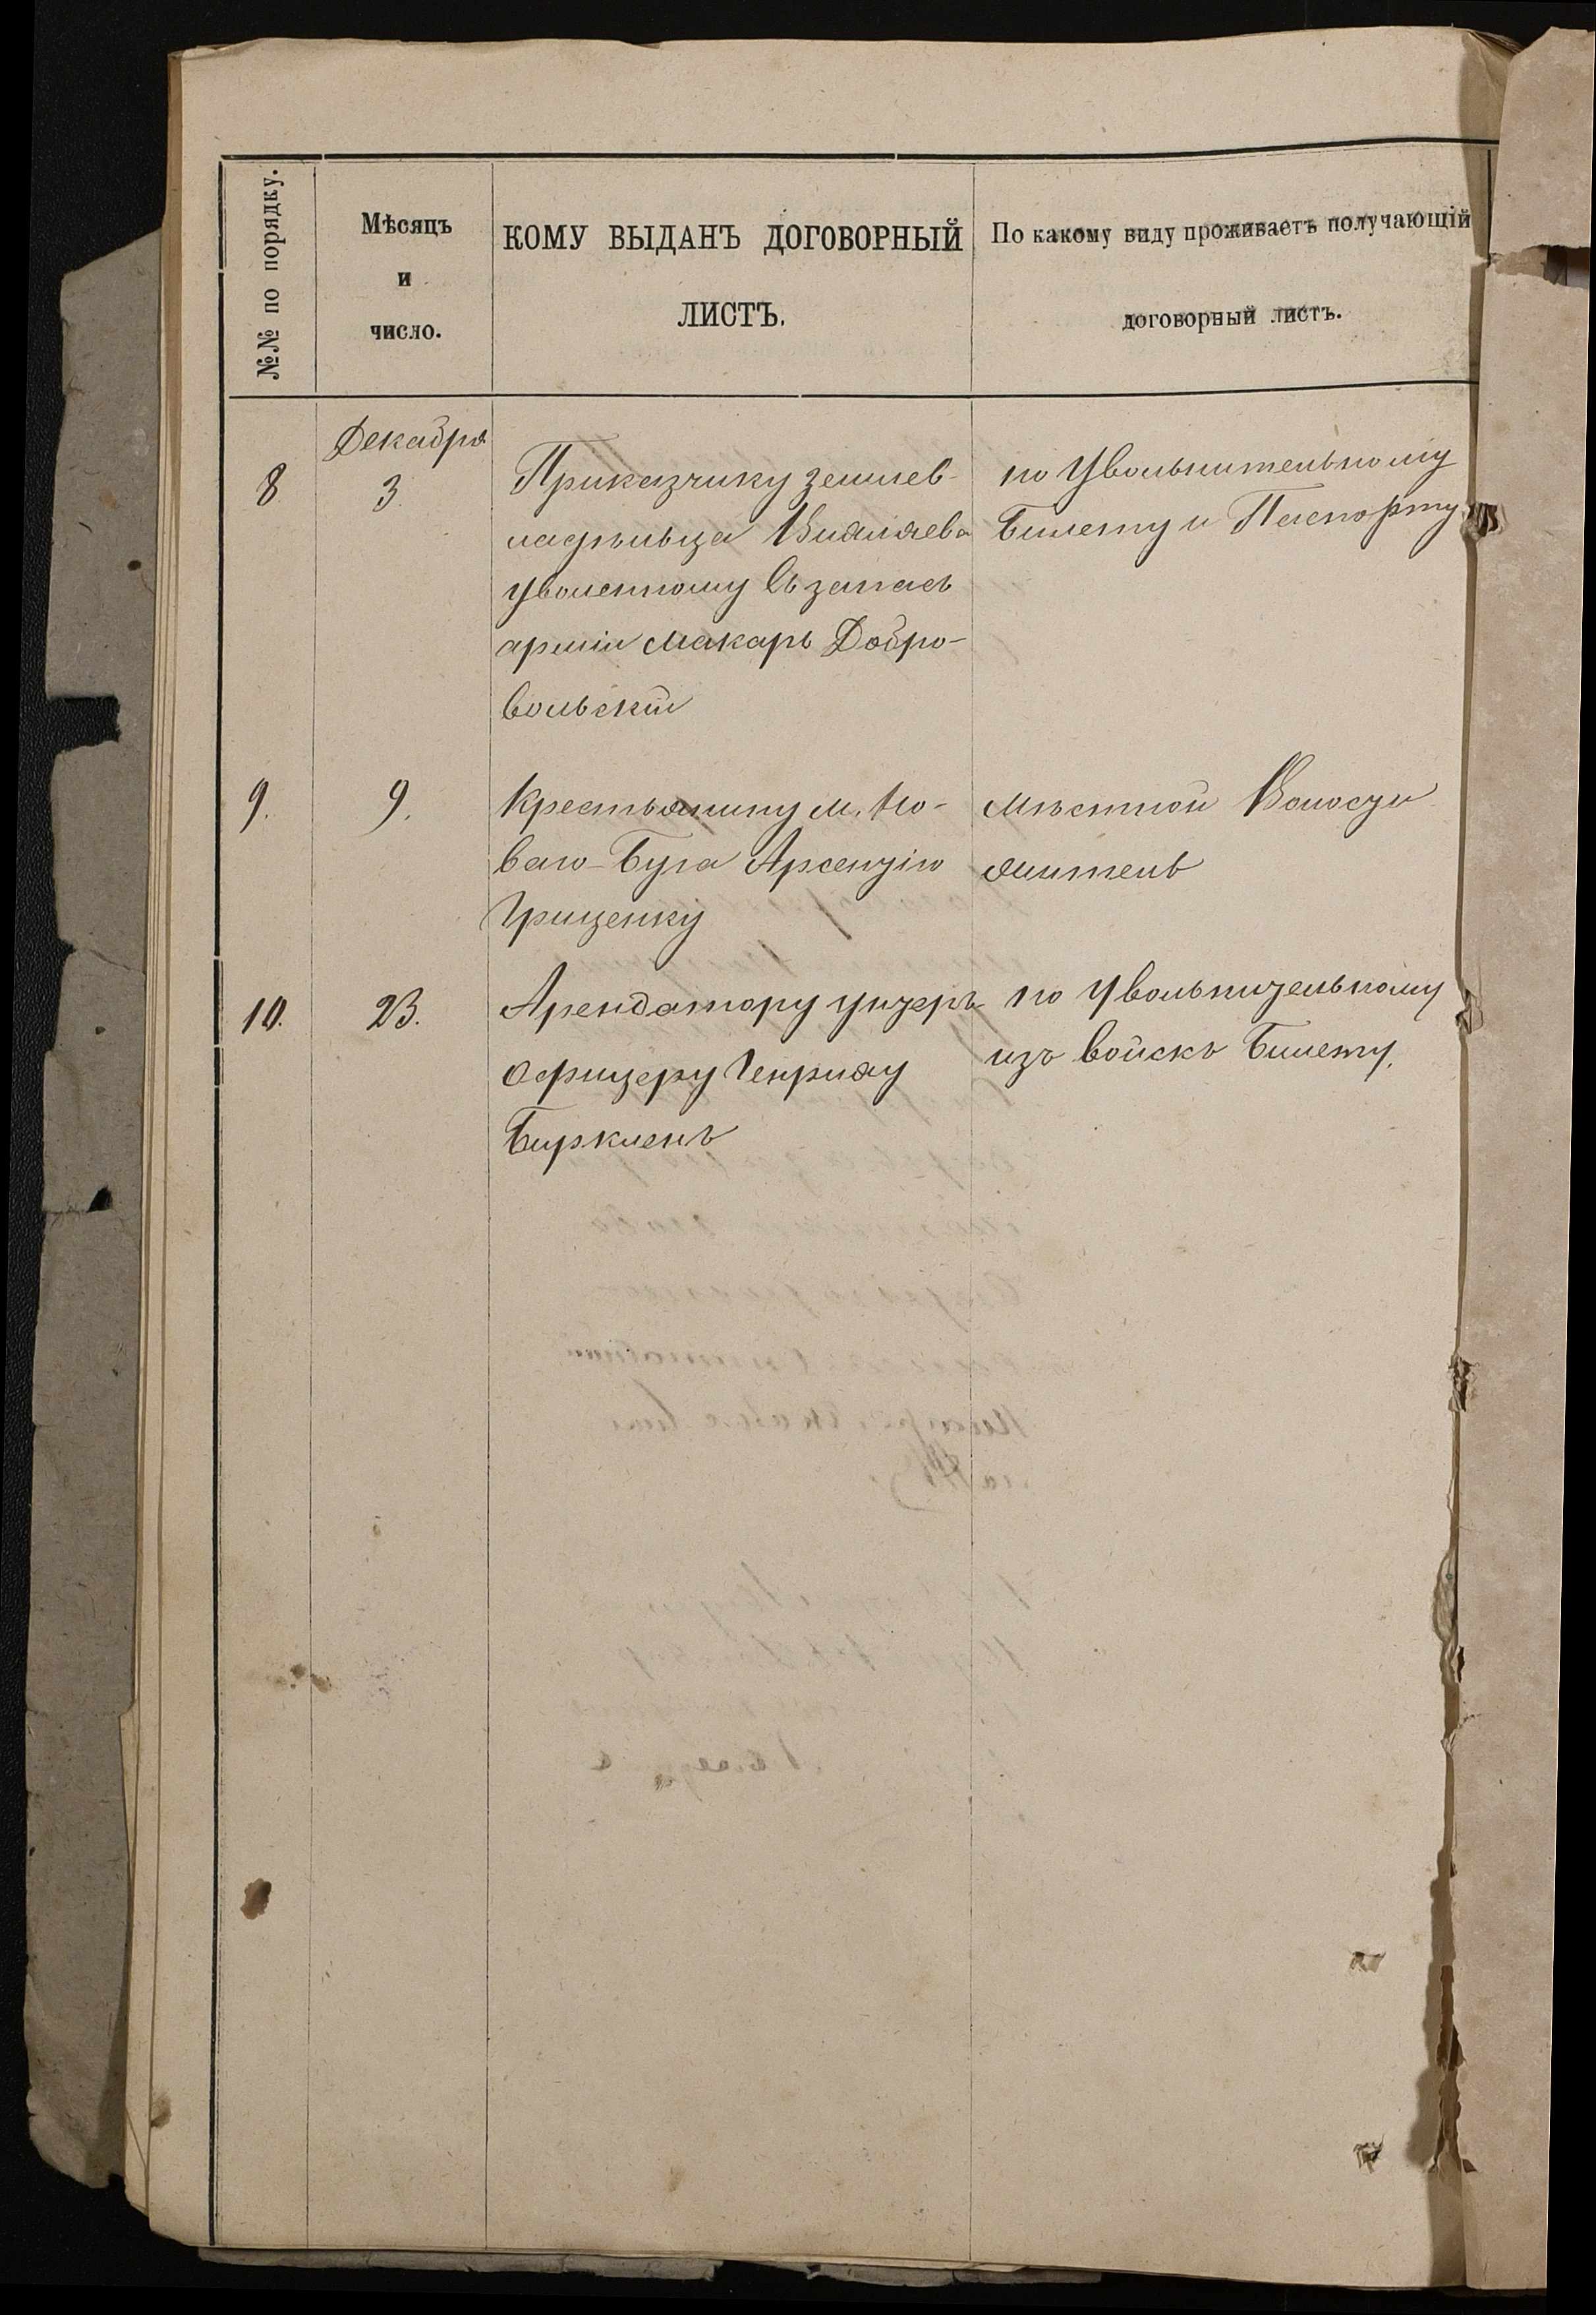 №№ по порядку.
Мѣсяцъ
и
число.
КОМУ ВЫДАНЪ ДОГОВОРНЫЙ
ЛИСТЪ.
По какому виду проживаетъ получающій
договорный листъ.
Декабря
8
3
Приказчику землев-
ладѣльца
уволенному въ запасъ
арміи Макаръ Добро-
вольскій
по Увольнительному
Билету и Паспорту
9.
9.
Крестьянину м. Но-
ваго-Буга Арсентію
Грищенку
Мѣстной Волости
житель
10.
23.
Арендатору унтеръ-
офицеру Генриху
Биркленъ
по Увольнительному
изъ войскъ Билету.